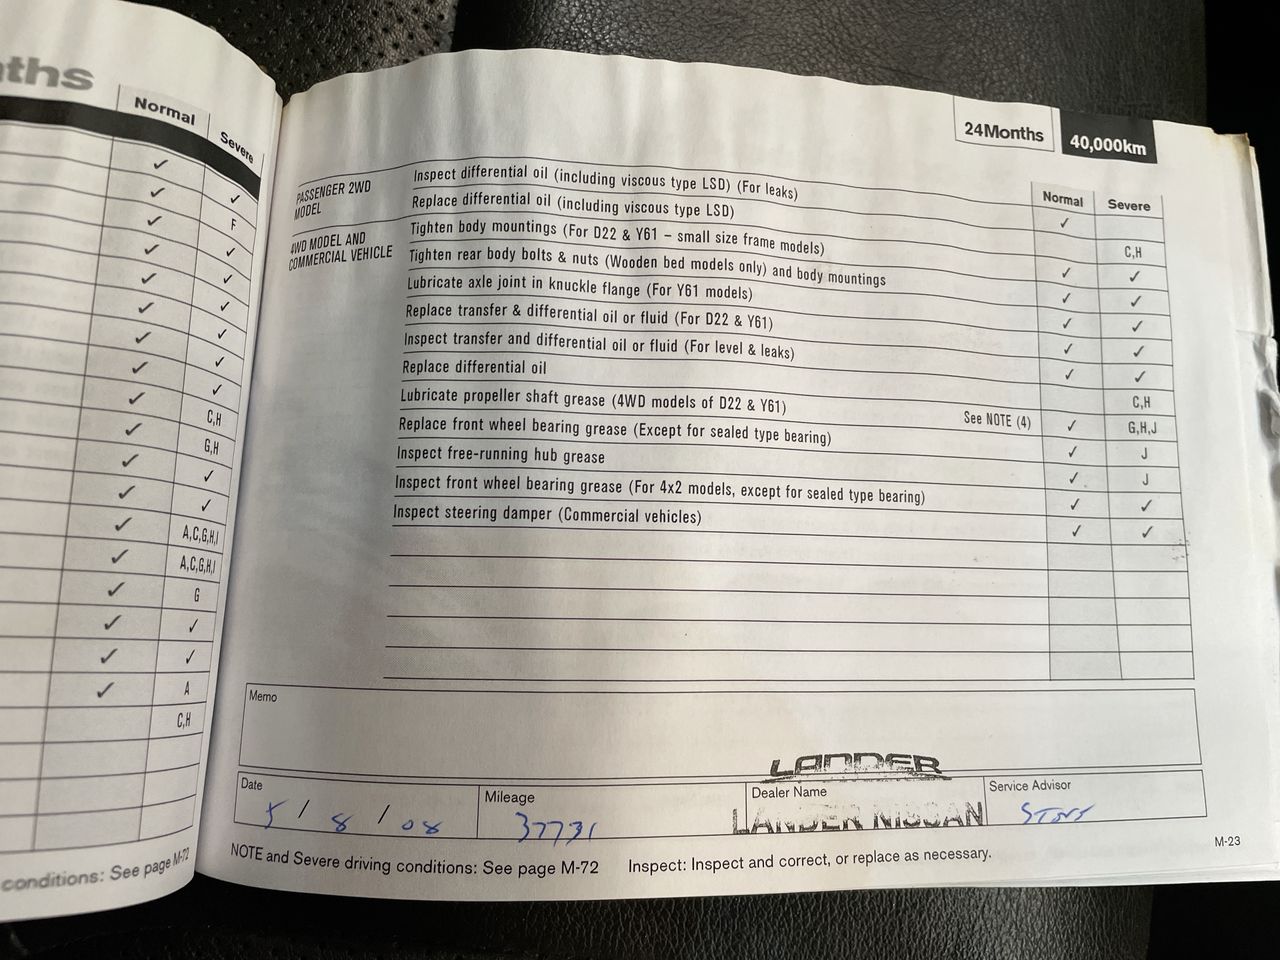 ths
Normal
Severe
✓ ✓
✓ F
✓ ✓
✓ ✓
✓ ✓
✓ ✓
✓ ✓
✓ ✓
✓ C,H
✓ G,H
✓ ✓
✓ ✓
✓ A,C,G,H,I
✓ A,C,G,H,I
✓ G
✓ ✓
✓ ✓
✓ A
C,H
conditions: See page M-72
24Months 40,000km
Normal Severe
PASSENGER 2WD
MODEL
Inspect differential oil (including viscous type LSD) (For leaks) ✓
Replace differential oil (including viscous type LSD) C,H
4WD MODEL AND
COMMERCIAL VEHICLE
Tighten body mountings (For D22 & Y61 – small size frame models) ✓ ✓
Tighten rear body bolts & nuts (Wooden bed models only) and body mountings ✓ ✓
Lubricate axle joint in knuckle flange (For Y61 models) ✓ ✓
Replace transfer & differential oil or fluid (For D22 & Y61) ✓ ✓
Inspect transfer and differential oil or fluid (For level & leaks) ✓ ✓
Replace differential oil C,H
Lubricate propeller shaft grease (4WD models of D22 & Y61) See NOTE (4) ✓ G,H,J
Replace front wheel bearing grease (Except for sealed type bearing) ✓ J
Inspect free-running hub grease ✓ J
Inspect front wheel bearing grease (For 4x2 models, except for sealed type bearing) ✓ ✓
Inspect steering damper (Commercial vehicles) ✓ ✓
Memo
LANDER
Date
5 / 8 / 08
Mileage
37731
Dealer Name
LANDER NISSAN
Service Advisor
NOTE and Severe driving conditions: See page M-72 Inspect: Inspect and correct, or replace as necessary.
M-23